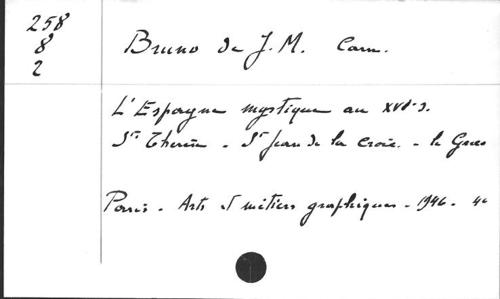 258
8
2
Bruno de J. M. Carm.
L'Espagne mystique au XVIe s.
Ste Thérèse - St Jean de la Croix - le Greco
Paris - Arts et métiers graphiques - 1946 - 4°